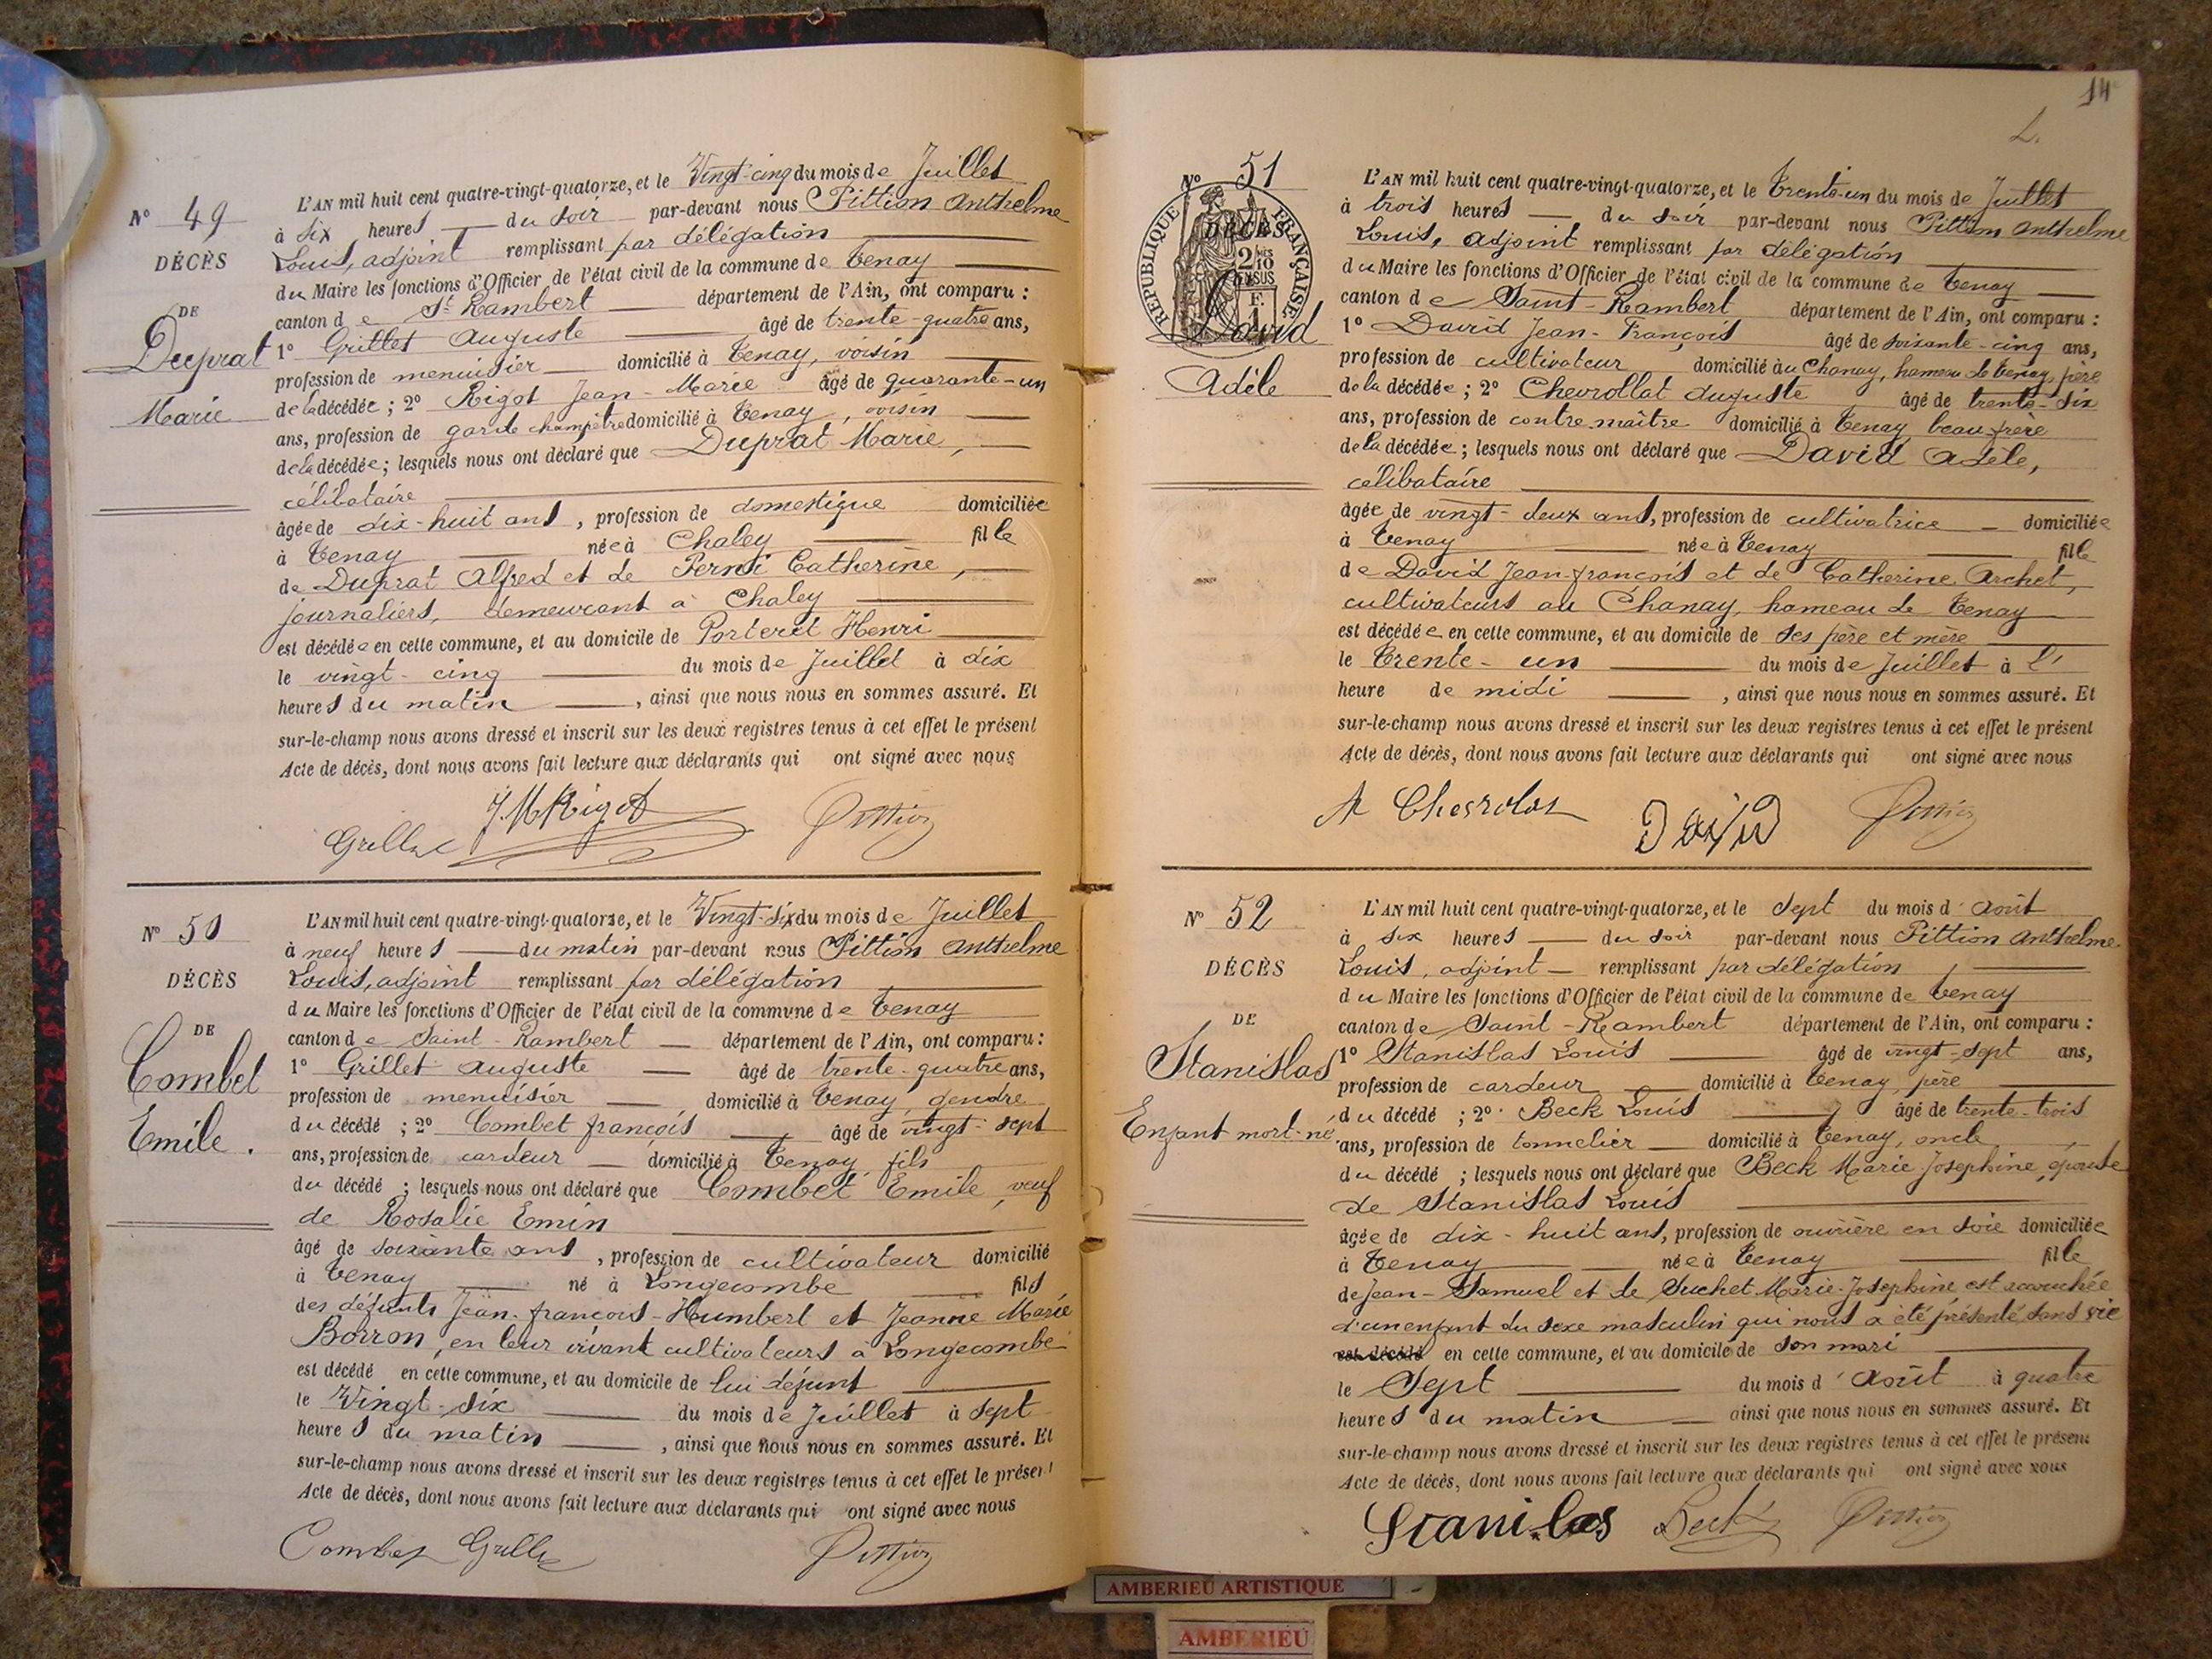 N° 49
DÉCÈS
DE
Duprat
Marie
L'AN mil huit cent quatre-vingt-quatorze, et le Vingt-cinq du mois de Juillet
à six heures du soir par-devant nous Pittion Anthelme
Louis, adjoint remplissant par délégation
du Maire les fonctions d'Officier de l'état civil de la commune de Tenay
canton de St Rambert département de l'Ain, ont comparu :
1° Grillet Auguste âgé de trente-quatre ans,
profession de menuisier domicilié à Tenay, voisin
de la décédée ; 2° Rigot Jean-Marie âgé de quarante-un
ans, profession de garde champêtre domicilié à Tenay, voisin
de la décédée ; lesquels nous ont déclaré que Duprat Marie,
célibataire
âgée de dix-huit ans, profession de domestique domiciliée
à Tenay née à Chaley fille
de Duprat Alfred et de Catherine,
journaliers, demeurant à Chaley
est décédée en cette commune, et au domicile de Porteret Henri
le vingt-cinq du mois de Juillet à dix
heures du matin, ainsi que nous nous en sommes assuré. Et
sur-le-champ nous avons dressé et inscrit sur les deux registres tenus à cet effet le présent
Acte de décès, dont nous avons fait lecture aux déclarants qui ont signé avec nous
J.M Rigot
Grillet Pittion
N° 50
DÉCÈS
DE
Combet
Emile.
L'AN mil huit cent quatre-vingt-quatorze, et le Vingt-six du mois de Juillet
à neuf heures du matin par-devant nous Pittion Anthelme
Louis, adjoint remplissant par délégation
du Maire les fonctions d'Officier de l'état civil de la commune de Tenay
canton de Saint-Rambert département de l'Ain, ont comparu :
1° Grillet Auguste âgé de trente-quatre ans,
profession de menuisier domicilié à Tenay, gendre
du décédé ; 2° Combet françois âgé de vingt-sept
ans, profession de cardeur domicilié à Tenay, fils
du décédé ; lesquels nous ont déclaré que Combet Emile, veuf
de Rosalie Emin
âgé de soixante ans, profession de cultivateur domicilié
à Tenay né à Longecombe fils
des défunts Jean-françois-Humbert et Jeanne Marie
Borron, en leur vivant cultivateurs à Longecombe
est décédé en cette commune, et au domicile de lui défunt
le Vingt-six du mois de Juillet à sept
heures du matin, ainsi que nous nous en sommes assuré. Et
sur-le-champ nous avons dressé et inscrit sur les deux registres tenus à cet effet le présent
Acte de décès, dont nous avons fait lecture aux déclarants qui ont signé avec nous
Combet Grillet Pittion
14
N° 51
RÉPUBLIQUE FRANÇAISE
DÉCÈS
2/10 EN SUS
David
Adèle
L'AN mil huit cent quatre-vingt-quatorze, et le Trente-un du mois de Juillet
à trois heures du soir par-devant nous Pittion Anthelme
Louis, adjoint remplissant par délégation
du Maire les fonctions d'Officier de l'état civil de la commune de Tenay
canton de Saint-Rambert département de l'Ain, ont comparu :
1° David Jean-François âgé de soixante-cinq ans,
profession de cultivateur domicilié au Chanay, hameau de Tenay, père
de la décédée ; 2° Chevrollat Auguste âgé de trente-six
ans, profession de contre maître domicilié à Tenay, beau-frère
de la décédée ; lesquels nous ont déclaré que David Adèle,
célibataire
âgée de vingt-deux ans, profession de cultivatrice domiciliée
à Tenay née à Tenay fille
de David Jean-françois et de Catherine Archet,
cultivateurs au Chanay, hameau de Tenay
est décédée en cette commune, et au domicile de ses père et mère
le Trente-un du mois de Juillet à l'
heure de midi, ainsi que nous nous en sommes assuré. Et
sur-le-champ nous avons dressé et inscrit sur les deux registres tenus à cet effet le présent
Acte de décès, dont nous avons fait lecture aux déclarants qui ont signé avec nous
David Pittion
N° 52
DÉCÈS
DE
Stanislas
Enfant mort-né.
L'AN mil huit cent quatre-vingt-quatorze, et le Sept du mois d'Août
à six heures du soir par-devant nous Pittion Anthelme
Louis, adjoint remplissant par délégation,
du Maire les fonctions d'Officier de l'état civil de la commune de Tenay
canton de Saint-Rambert département de l'Ain, ont comparu :
1° Stanislas Louis âgé de vingt-sept ans,
profession de cardeur domicilié à Tenay, père
du décédé ; 2° Beck Louis âgé de trente-trois
ans, profession de tonnelier domicilié à Tenay, oncle
du décédé ; lesquels nous ont déclaré que Beck Marie Josephine, épouse
de Stanislas Louis
âgée de dix-huit ans, profession de ouvrière en soie domiciliée
à Tenay née à Tenay fille
de Jean-Samuel et de Suchet Marie-Josephine est accouchée
d'un enfant du sexe masculin qui nous a été présenté sans vie
est décédé en cette commune, et au domicile de son mari
le Sept du mois d'Août à quatre
heures du matin ainsi que nous nous en sommes assuré. Et
sur-le-champ nous avons dressé et inscrit sur les deux registres tenus à cet effet le présent
Acte de décès, dont nous avons fait lecture aux déclarants qui ont signé avec nous
Stanislas Beck Pittion
AMBERIEU ARTISTIQUE
AMBERIEU